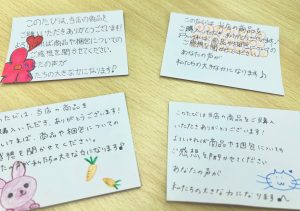 このたびは、当店の商品を
ご購入いただきありがとうございます!
よろしければ商品や梱包についての
ご感想を聞かせてください。
の声が
たちの大きな力になります♪
このたびは、当店の商品を
ご購入いただき、ありがとうございます!
商品や梱包についての
ご感想を聞かせてください
あなたの声が
私たちの大きな力になります♪
このたびは、当店の商品を
購入いただき、ありがとうございます!
ければ、商品や梱包についての
感想を聞かせてください。
の声が私たちの大きな力になります♪
このたびは当店の商品をご購入
いただきありがとうございます!
よろしければ商品や梱包についての
ご感想を聞かせてください
あなたの声が
私たちの大きな力になります♪